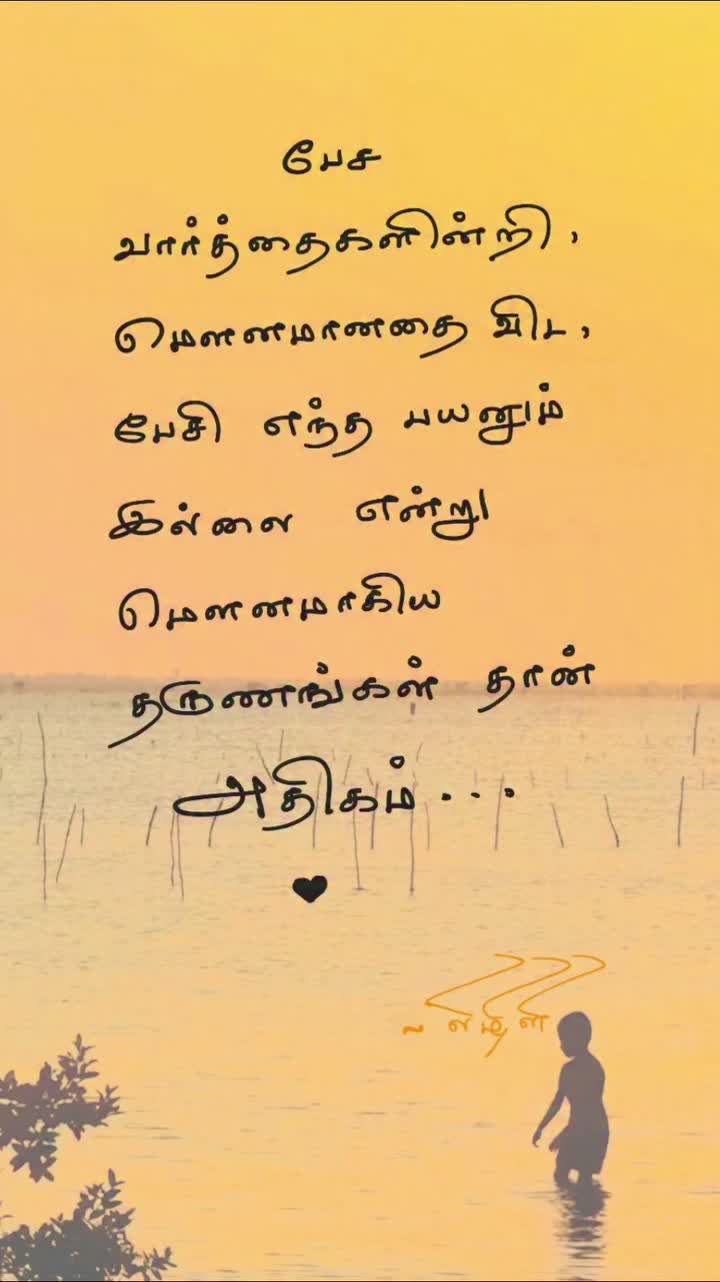 பேச
வார்த்தைகளின்றி,
மௌனமானதை விட,
பேசி எந்த பயனும்
இல்லை என்று
மௌனமாகிய
தருணங்கள் தான்
அதிகம்...